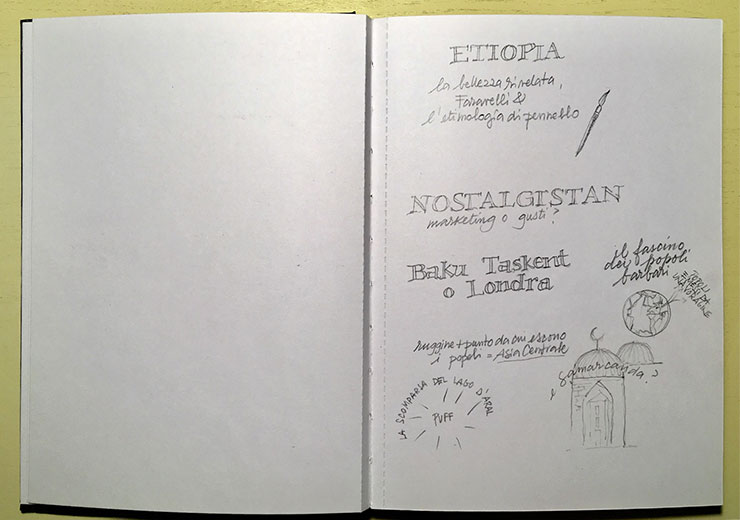 ETIOPIA
la bellezza svelata,
Favarelli &
l'etimologia di pennello
NOSTALGISTAN
marketing o gusti?
Baku Taskent
o Londra
il fascino
dei popoli
barbari
ruggine + punto da cui escono
i popoli = Asia Centrale
Samarcanda
LA SCOMPARSA DEL LAGO D'ARAL
PUFF